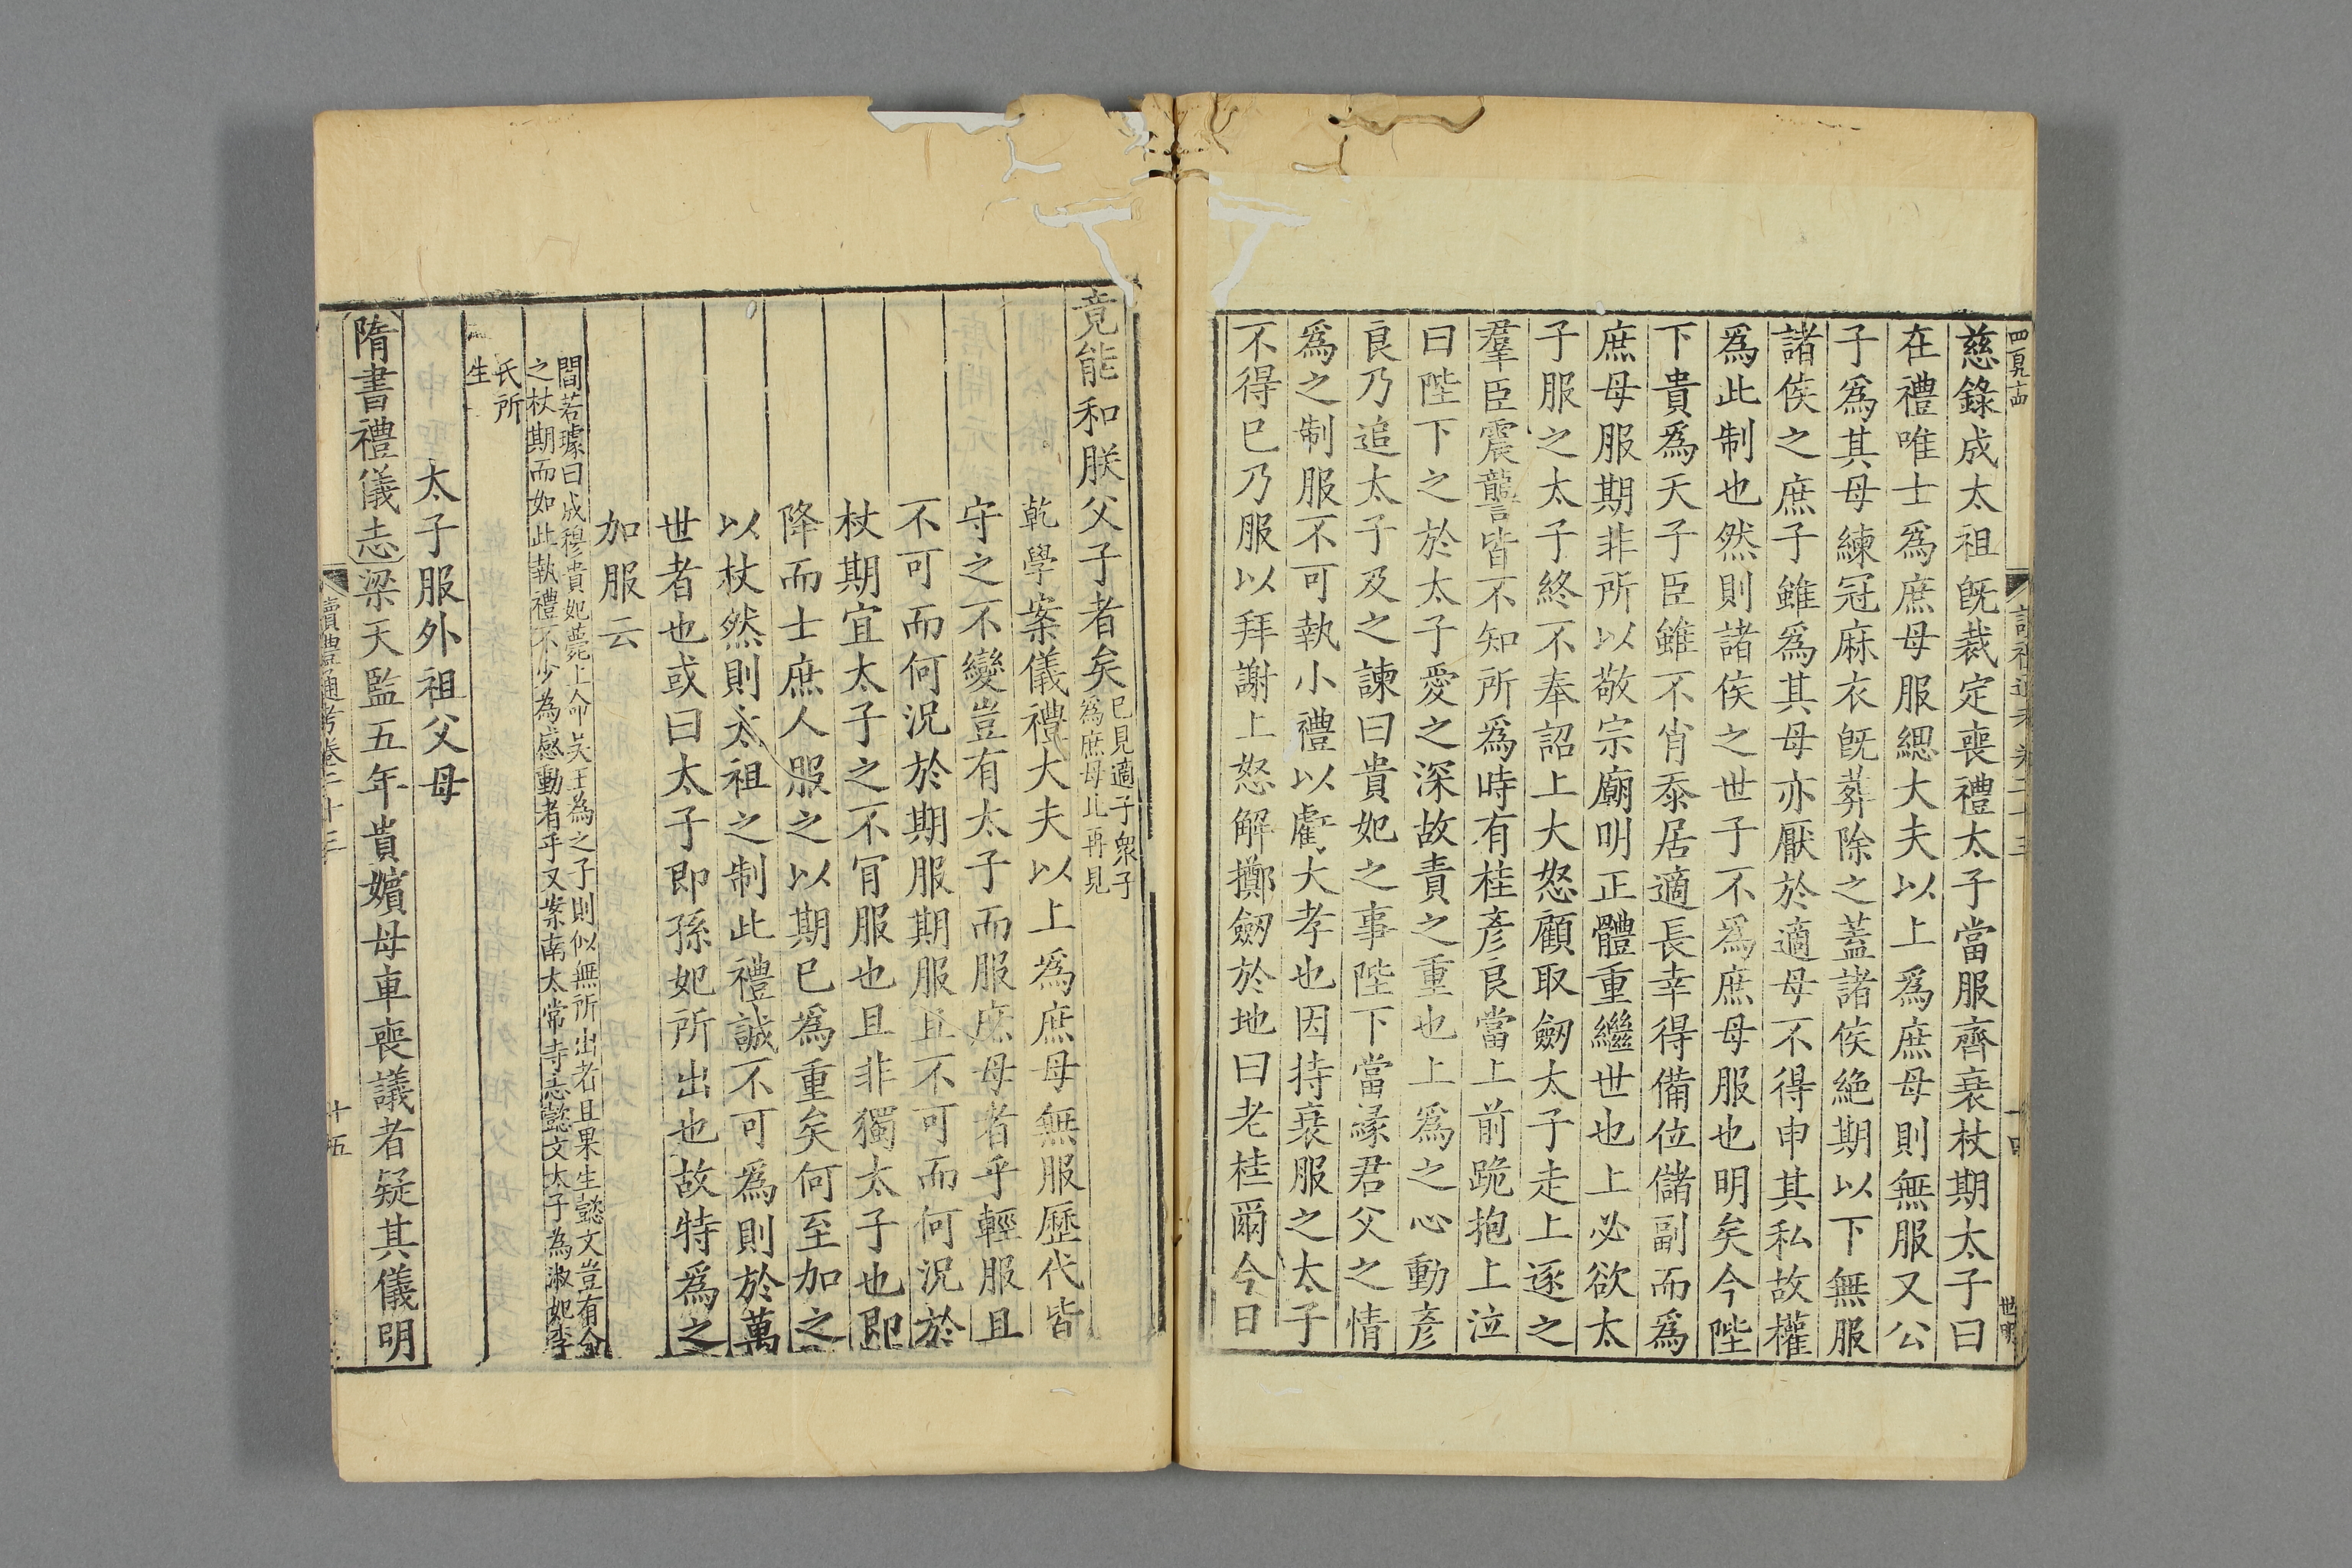 慈錄成太祖旣裁定喪禮太子當服齊衰杖期太子曰
在禮唯士爲庶母服緦大夫以上爲庶母則無服又公
子爲其母練冠麻衣旣葬除之蓋諸侯絶期以下無服
諸侯之庶子雖爲其母亦厭於適母不得申其私故權
爲此制也然則諸侯之世子不爲庶母服也明矣今陛
下貴爲天子臣雖不肖忝居適長幸得備位儲副而爲
庶母服期非所以敬宗廟明正體重繼世也上必欲太
子服之太子終不奉詔上大怒顧取劒太子走上逐之
羣臣震讋皆不知所爲時有桂彥良當上前跪抱上泣
曰陛下之於太子愛之深故責之重也上爲之心動彥
良乃追太子及之諫曰貴妃之事陛下當縁君父之情
爲之制服不可執小禮以虧大孝也因持衰服之太子
不得已乃服以拜謝上怒解擲劒於地曰老桂爾今日
竟能和朕父子者矣已見適子衆子
爲庶母此再見
乾學案儀禮大夫以上爲庶母無服歷代皆
守之不變豈有太子而服庶母者乎輕服且
不可而何況於期服期服且不可而何況於
杖期宜太子之不肎服也且非獨太子也卽
降而士庶人服之以期已爲重矣何至加之
以杖然則太祖之制此禮誠不可爲則於萬
世者也或曰太子卽孫妃所出也故特爲之
加服云
閻若璩曰成穆貴妃薨上命吳王為之子則似無所出者且果生懿文豈有令
之杖期而如此執禮不少為感動者乎又案南太常寺志懿文太子為淑妃李
氏所
生
太子服外祖父母
隋書禮儀志梁天監五年貴嬪母車喪議者疑其儀明
讀禮通考卷二十三
十五